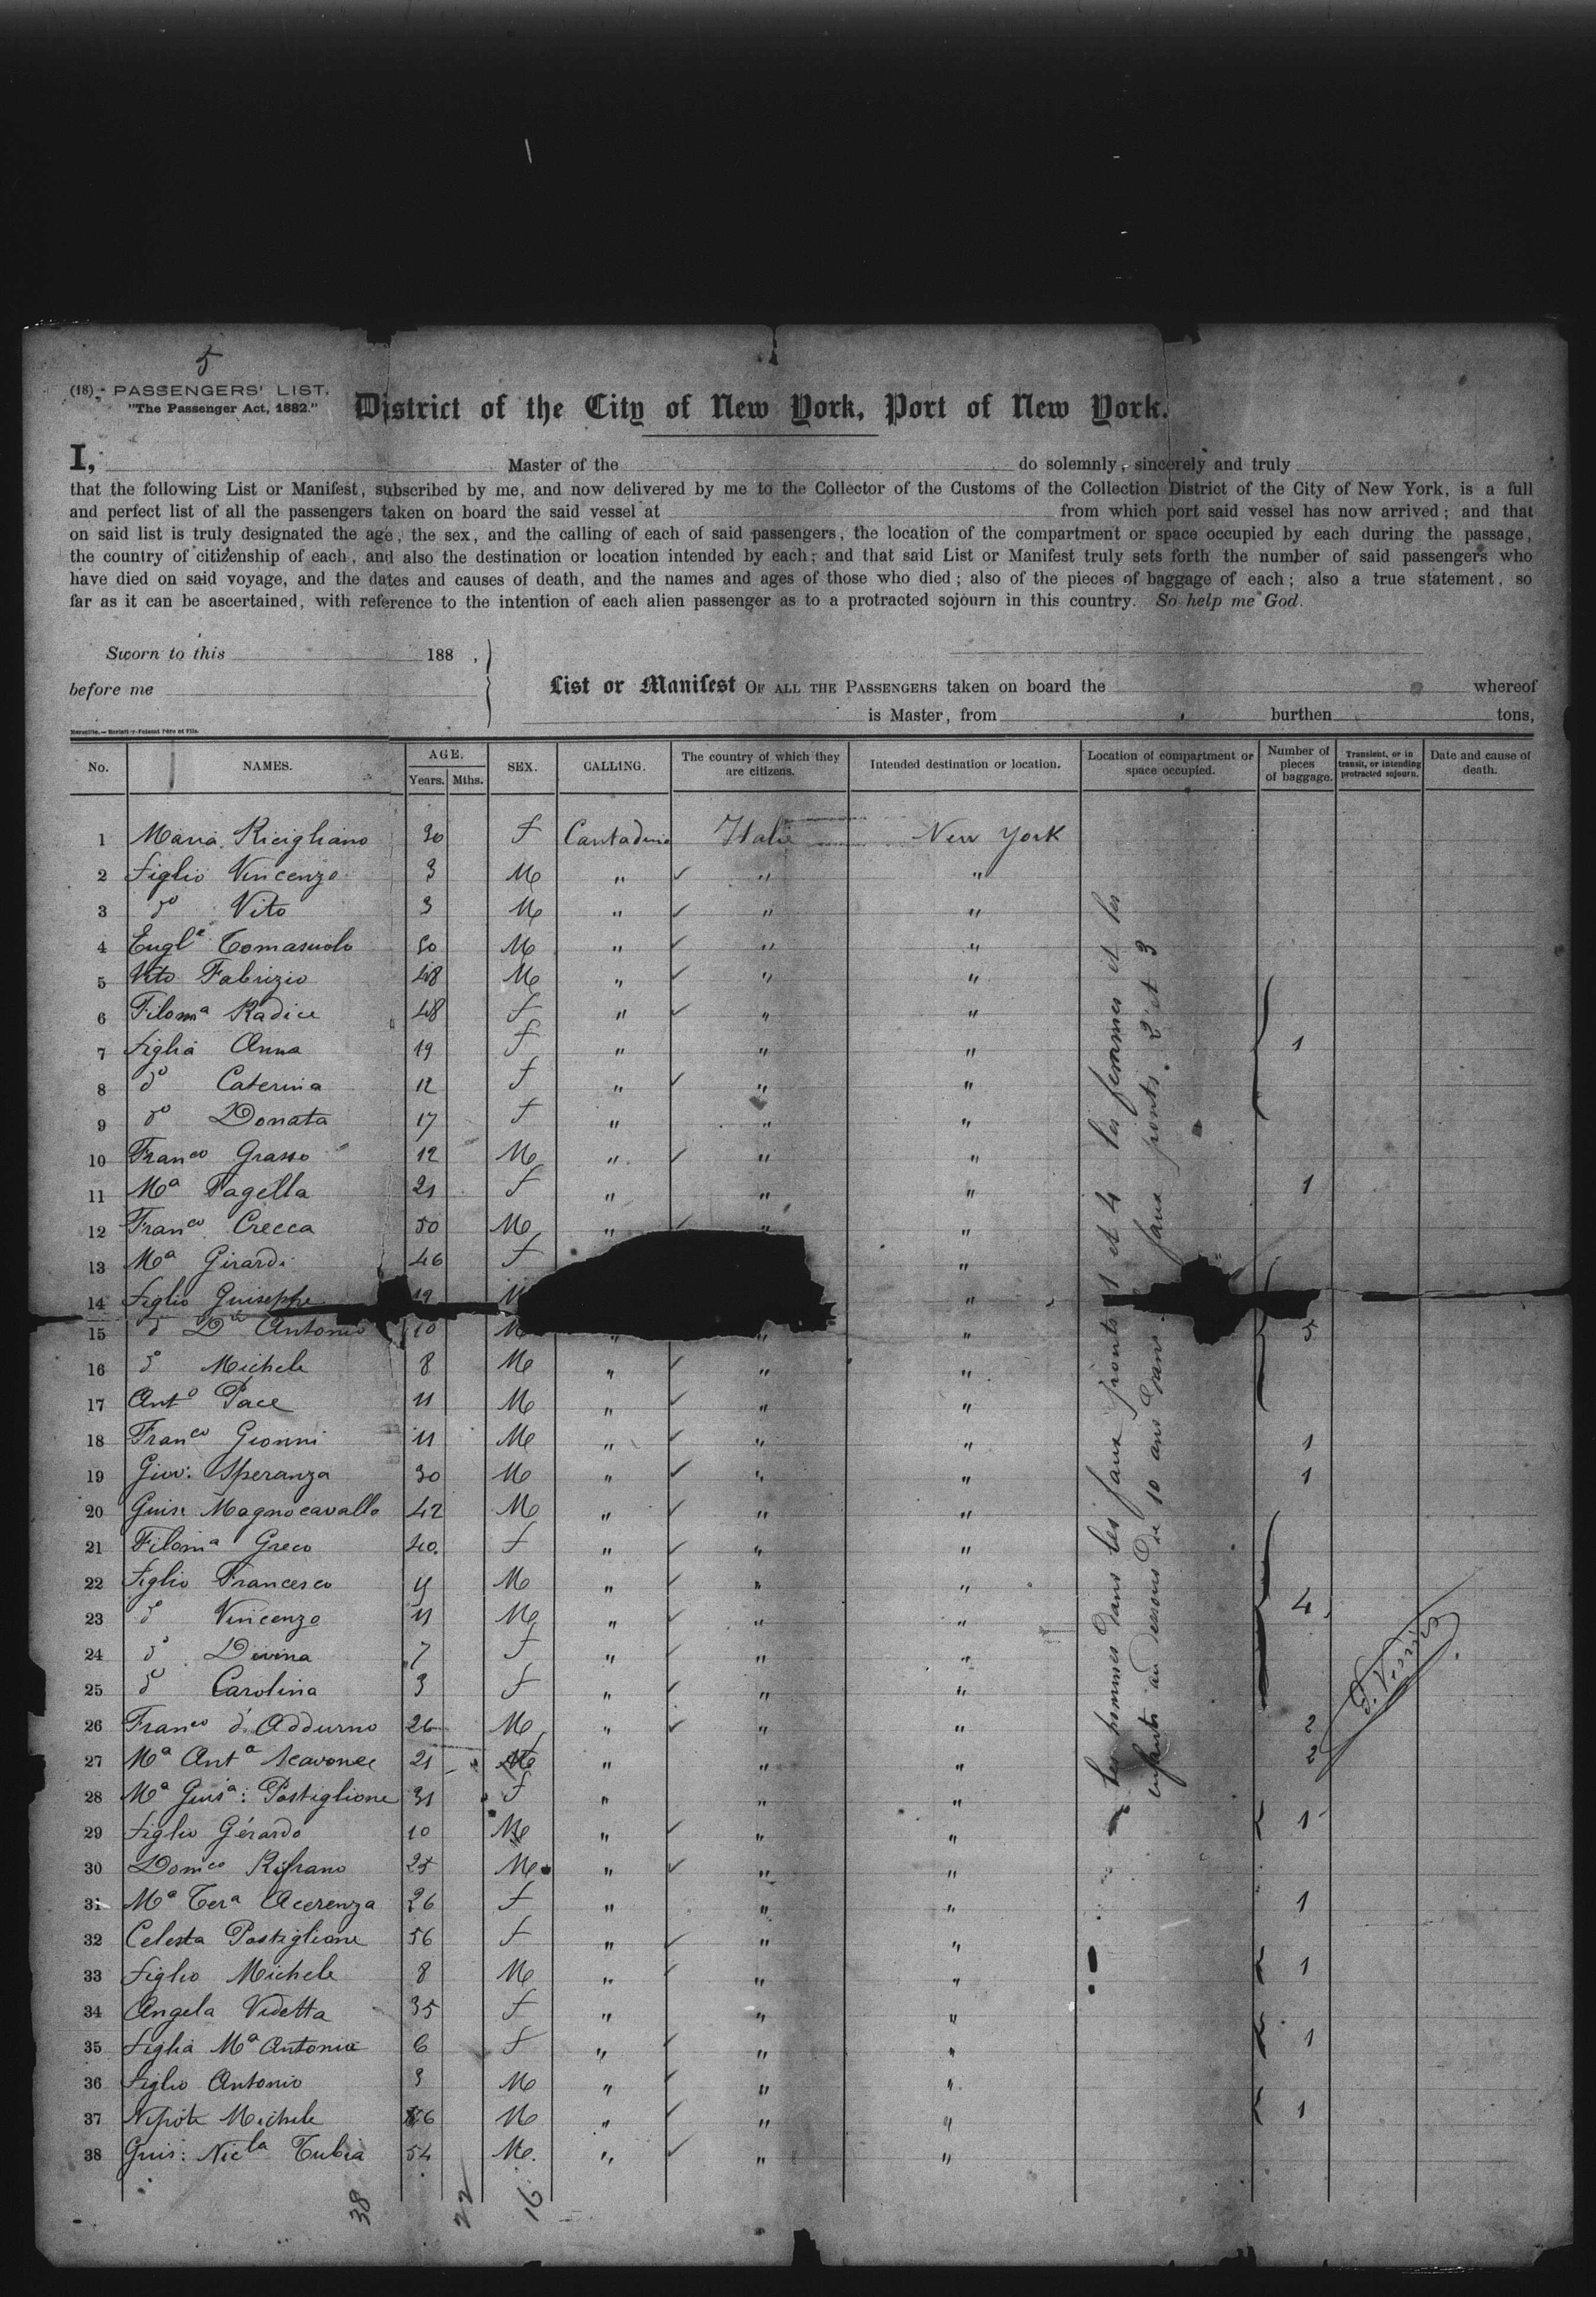 5
(18) - PASSENGERS' LIST.
"The Passenger Act, 1882."
District of the City of New York, Port of New York.
I, Master of the do solemnly, sincerely and truly
that the following List or Manifest, subscribed by me, and now delivered by me to the Collector of the Customs of the Collection District of the City of New York, is a full
and perfect list of all the passengers taken on board the said vessel at from which port said vessel has now arrived; and that
on said list is truly designated the age, the sex, and the calling of each of said passengers, the location of the compartment or space occupied by each during the passage,
the country of citizenship of each, and also the destination or location intended by each; and that said List or Manifest truly sets forth the number of said passengers who
have died on said voyage, and the dates and causes of death, and the names and ages of those who died; also of the pieces of baggage of each; also a true statement, so
far as it can be ascertained, with reference to the intention of each alien passenger as to a protracted sojourn in this country. So help me God.
Sworn to this 188 ,
before me
List or Manifest OF ALL THE PASSENGERS taken on board the whereof
is Master, from burthen tons,
No. NAMES. AGE. Years. Mths. SEX. CALLING. The country of which they are citizens. Intended destination or location. Location of compartment or space occupied. Number of pieces of baggage. Transient, or in transit, or intending protracted sojourn. Date and cause of death.
1 Maria Ricigliano 30 F Contadino Italie New York
2 Figlio Vincenzo 3 M " " "
3 do Vito 3 M " " "
4 Eugla Tomasuolo 50 M " " "
5 Vito Fabrizio 48 M " " "
6 Filoma Radice 48 F " " "
7 Figlia Anna 19 F " " " 1
8 do Caterina 12 F " " "
9 do Donata 17 F " " "
10 Franco Grasso 12 M " " "
11 Ma Pagella 21 F " " " 1
12 Franco Crecca 50 M " " "
13 Ma Girardi 46 F "
14 Figlio Guiseppe 19 M "
15 do Antonio 10 M " " " 5
16 do Michele 8 M " " "
17 Anto Pace 11 M " " "
18 Franco Gionni 11 M " " " 1
19 Giov: Speranza 30 M " " " 1
20 Guise Magnocavallo 42 M " " "
21 Filoma Greco 40 F " " "
22 Figlio Francesco M " " "
23 do Vincenzo 11 M " " " 4
24 do Divina 7 F " " "
25 do Carolina 3 F " " "
26 Franco d'Addurno 26 M " " " 2
27 Ma Anta Scavonee 21 " " " 2
28 Ma Guisa: Postiglione 31 F " " "
29 Figlio Gérardo 10 M " " " 1
30 Domco Rifrano 25 M " " "
31 Ma Tera Acerenza 26 F " " " 1
32 Celesta Postiglione 56 F " " "
33 Figlio Michele 8 M " " " 1
34 Angela Videtta 35 F " " "
35 Figlia Ma Antonia 6 F " " " 1
36 Figlio Antonio 3 M " " "
37 Nipote Michele M " " " 1
38 Guis: Nicla Tubia 54 M. " " "
Les hommes dans les faux ponts 1 et 4 les femmes et les
enfants au dessous de 10 ans dans faux ponts. 2 et 3
38 22 16